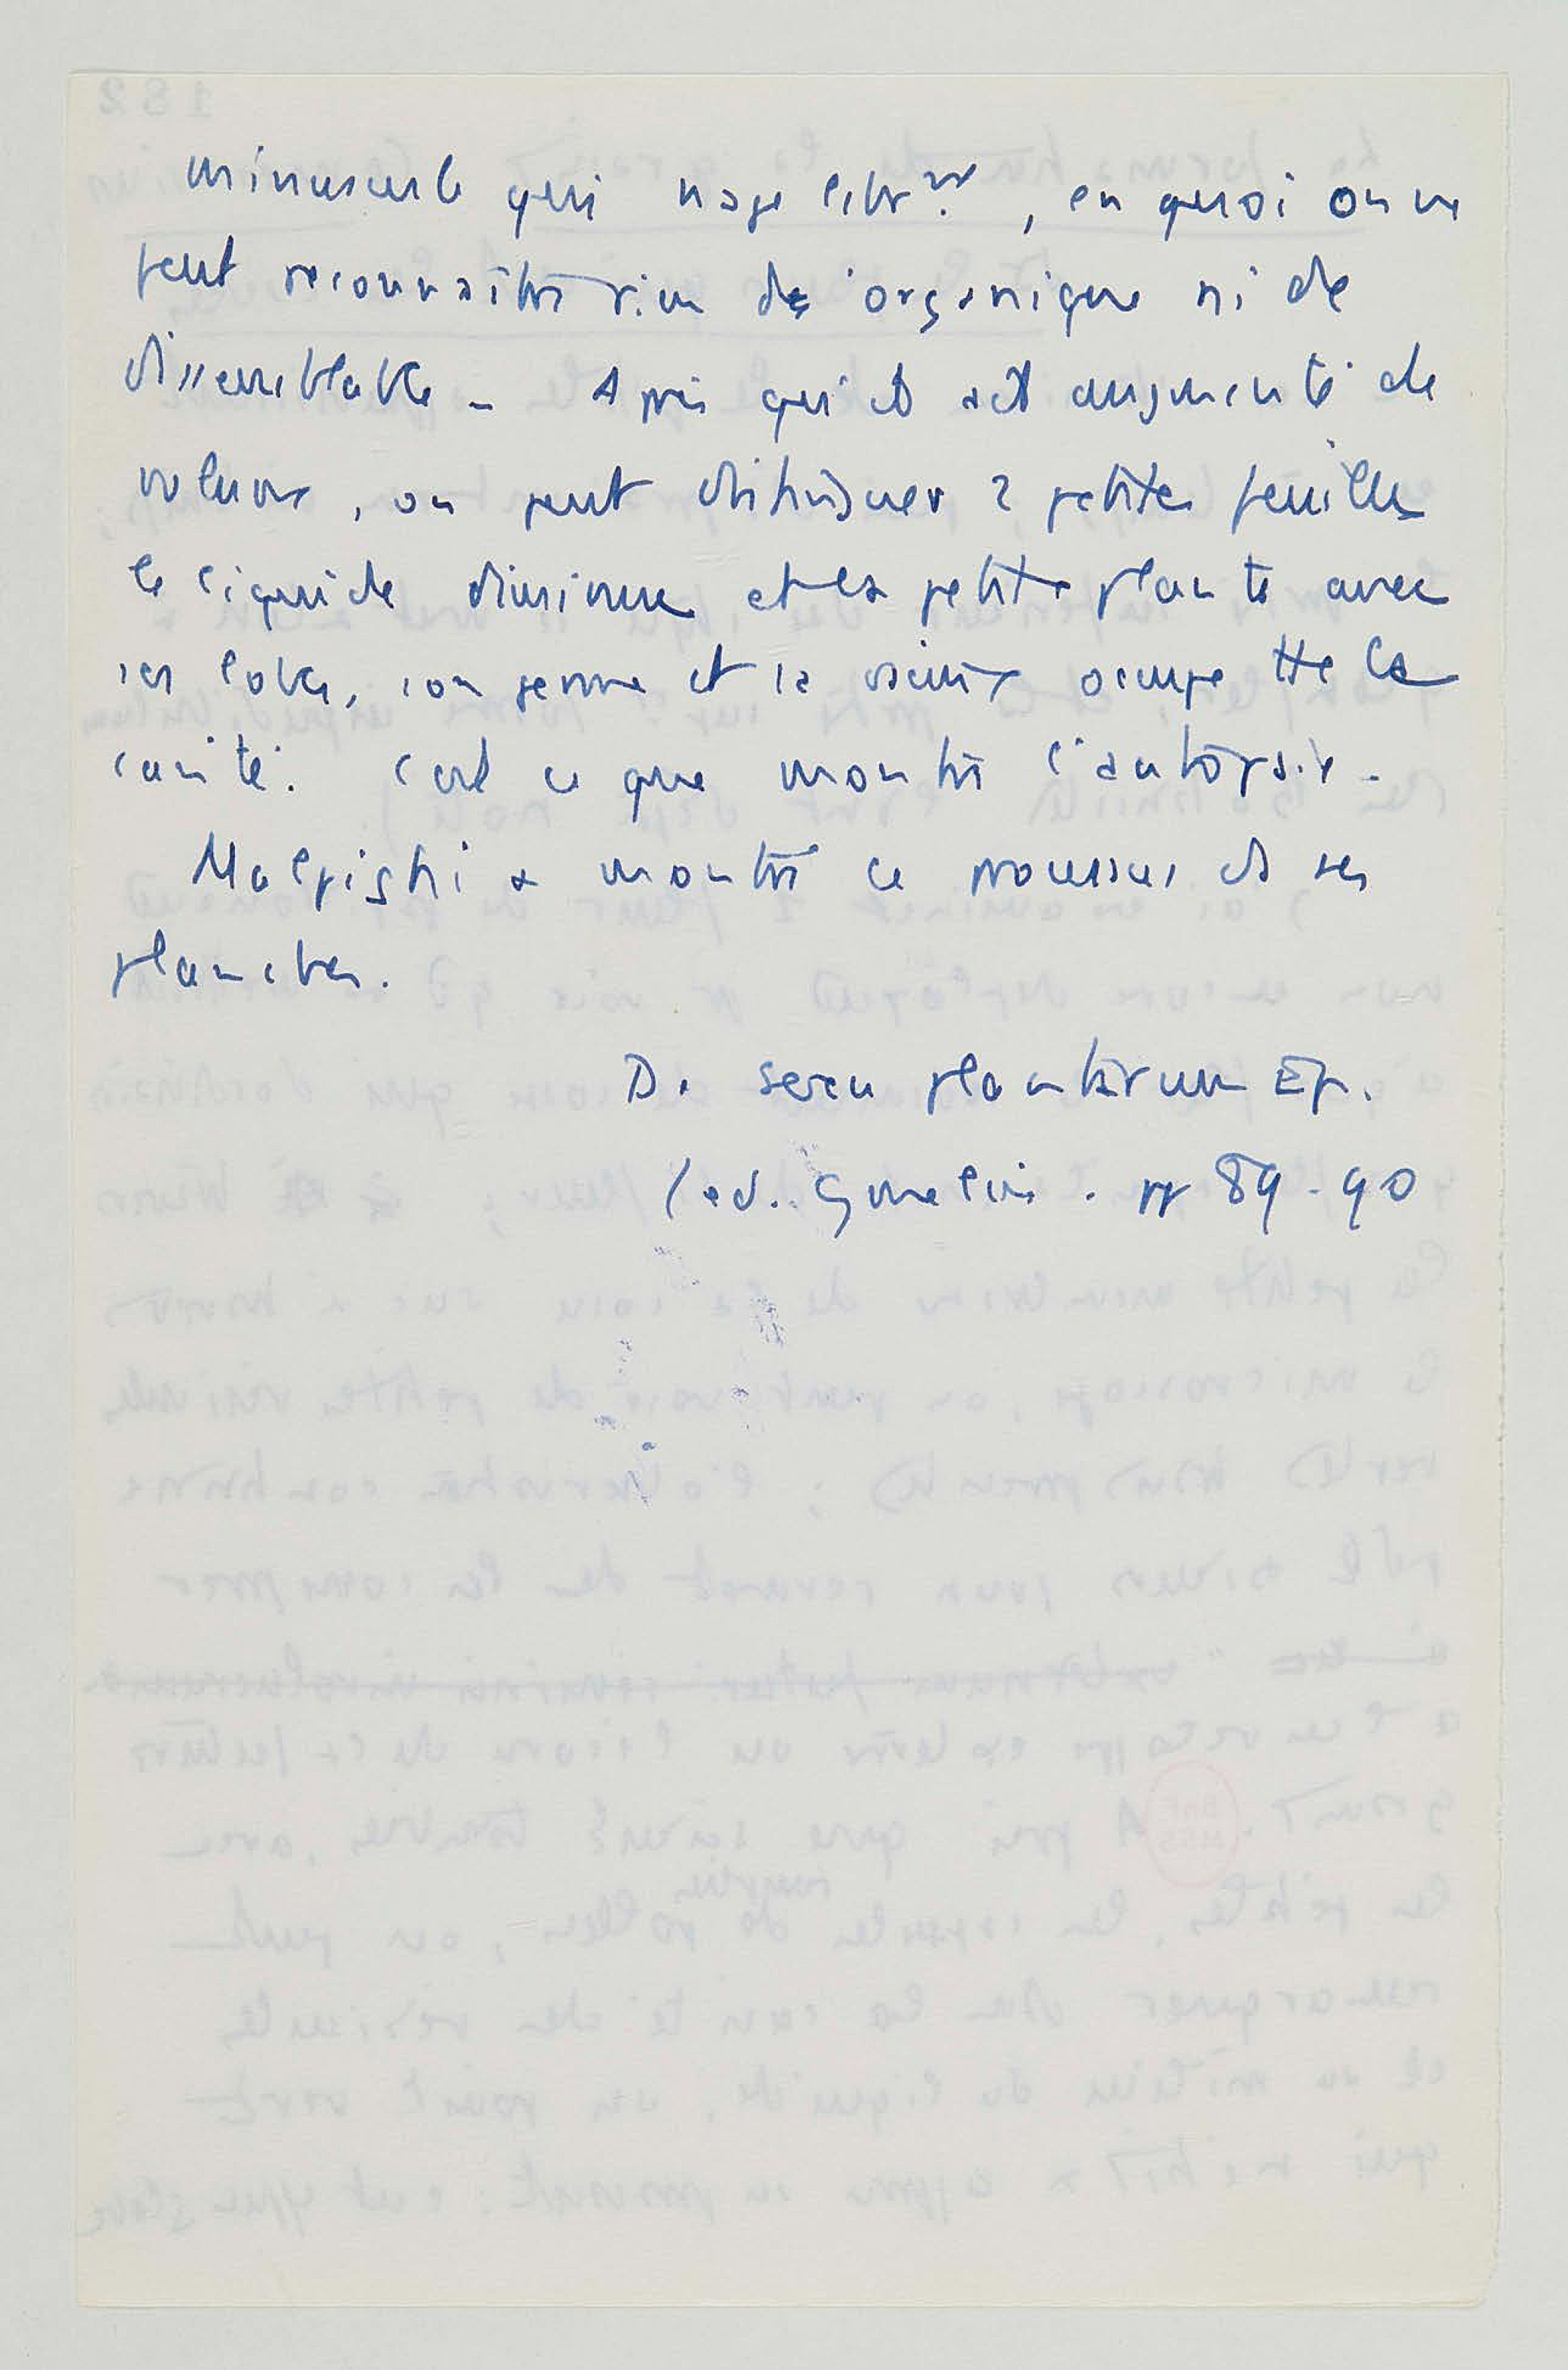 minuscule qui nage libr^nt, en quoi on ne
peut reconnaître rien de organique ni de
dissemblable - Après qu'il ait augmenté de
volume, on peut distinguer 2 petites feuilles
le liquide diminue et la petite plante avec
ses lobes, son germe et sa racine occupe tte la
cavité. C'est ce que montre l'autopsie -
Malpighi a montré ce processus ds ses
planches.
De sexu plantarum Ep.
(ed. Gmelin. pp 89-90